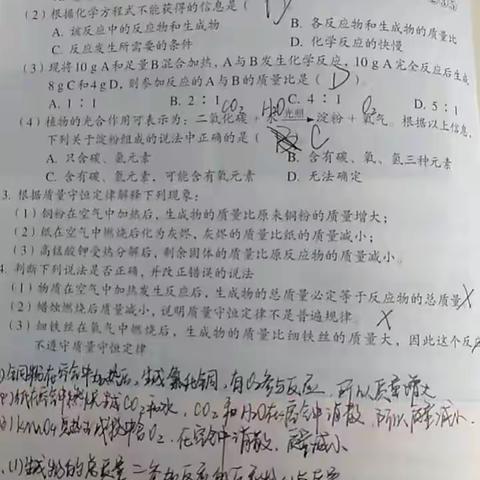 (2) 根据化学方程式不能获得的信息是(
A. 该反应中的反应物和生成物 B. 各反应物和生成物的质量比
C. 反应发生所需要的条件 D. 化学反应的快慢
(3) 现将10 g A和足量B混合加热, A与B发生化学反应, 10 g A完全反应后生成
8 g C和4 g D, 则参加反应的A与B的质量比是( D ).
A. 1∶1 B. 2∶1 C. 4∶1 D. 5∶1
CO₂ H₂O O₂
(4) 植物的光合作用可表示为: 二氧化碳 + 光照 淀粉 + 氧气. 根据以上信息,
下列关于淀粉组成的说法中正确的是( C
A. 只含碳、氢元素 B. 含有碳、氧、氢三种元素
C. 含有碳、氢元素, 可能含有氧元素 D. 无法确定
3. 根据质量守恒定律解释下列现象:
(1) 铜粉在空气中加热后, 生成物的质量比原来铜粉的质量增大;
(2) 纸在空气中燃烧后化为灰烬, 灰烬的质量比纸的质量减小;
(3) 高锰酸钾受热分解后, 剩余固体的质量比原反应物的质量减小.
4. 判断下列说法是否正确, 并改正错误的说法
(1) 物质在空气中加热发生反应后, 生成物的总质量必定等于反应物的总质量 X
(2) 蜡烛燃烧后质量减小, 说明质量守恒定律不是普遍规律. X
(3) 细铁丝在氧气中燃烧后, 生成物的质量比细铁丝的质量大, 因此这个反
不遵守质量守恒定律
铜粉在空气中加热后, 生成氧化铜, 有O₂参与反应, 所以质量增大
纸在空气中燃烧生成CO₂和水, CO₂和H₂O在空气中消散, 所以质量减小.
KMnO₄ O₂, 在空气中消散, 质量减小
(1) 生成物的总质量二